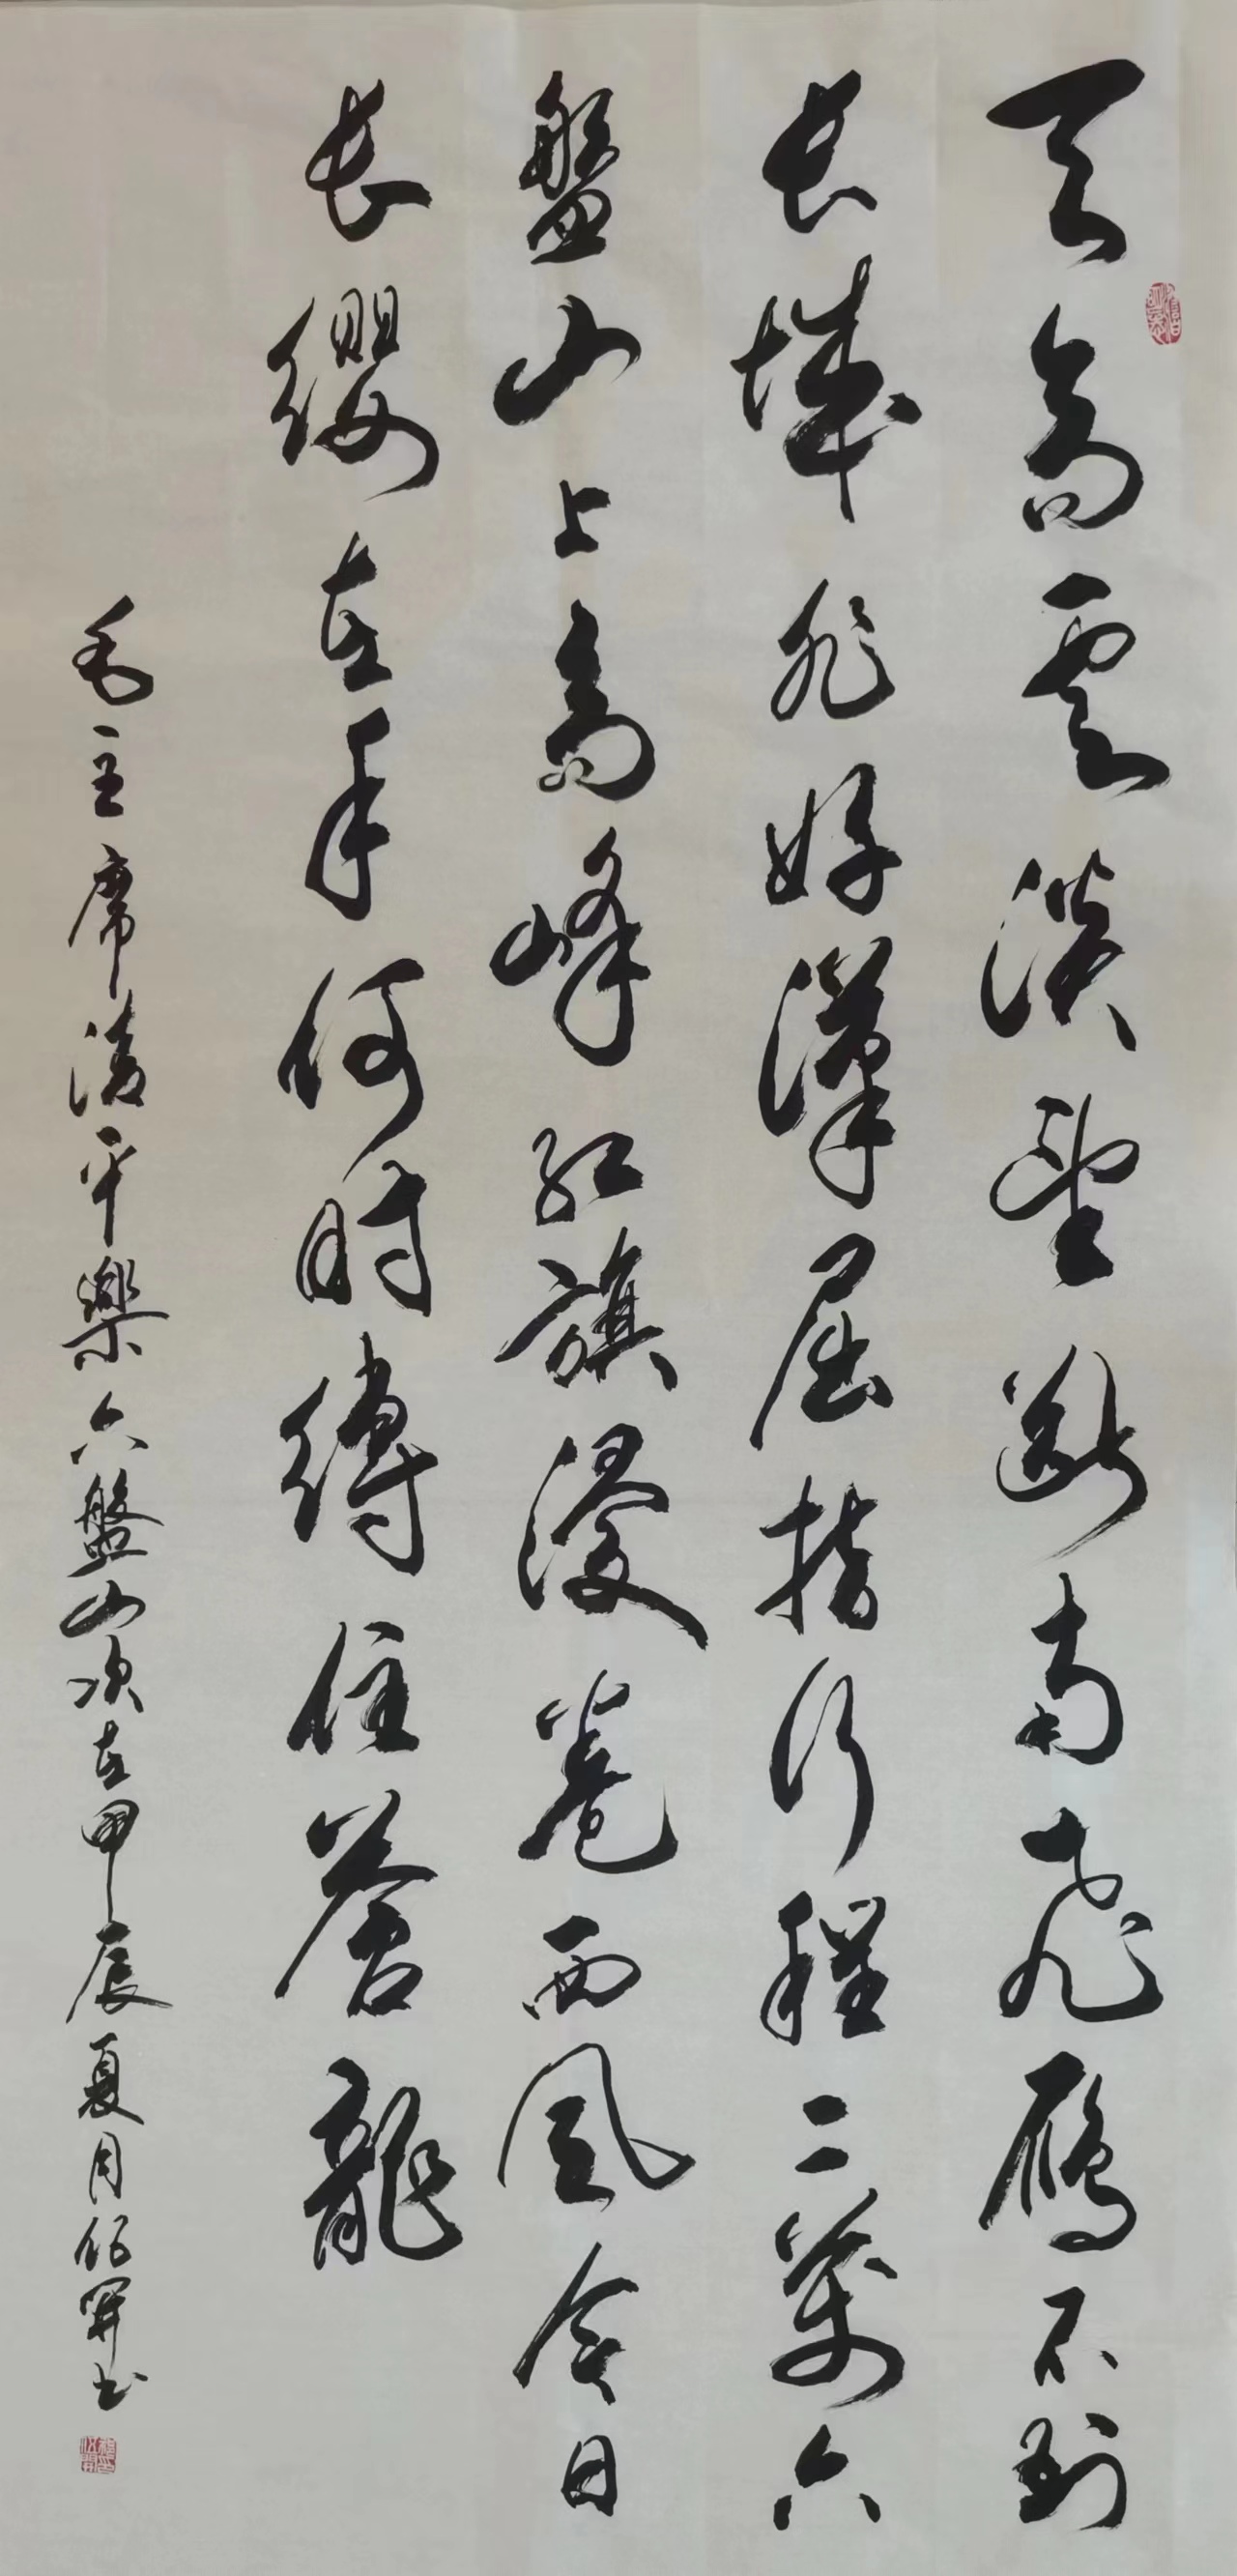 天高雲淡望斷南飛鴈不到
長城非好漢屈指行程二萬六
盤山上高峰紅旗漫卷西風今日
長纓在手何時縛住蒼龍
毛主席清平樂六盤山次在甲辰夏月伯開书